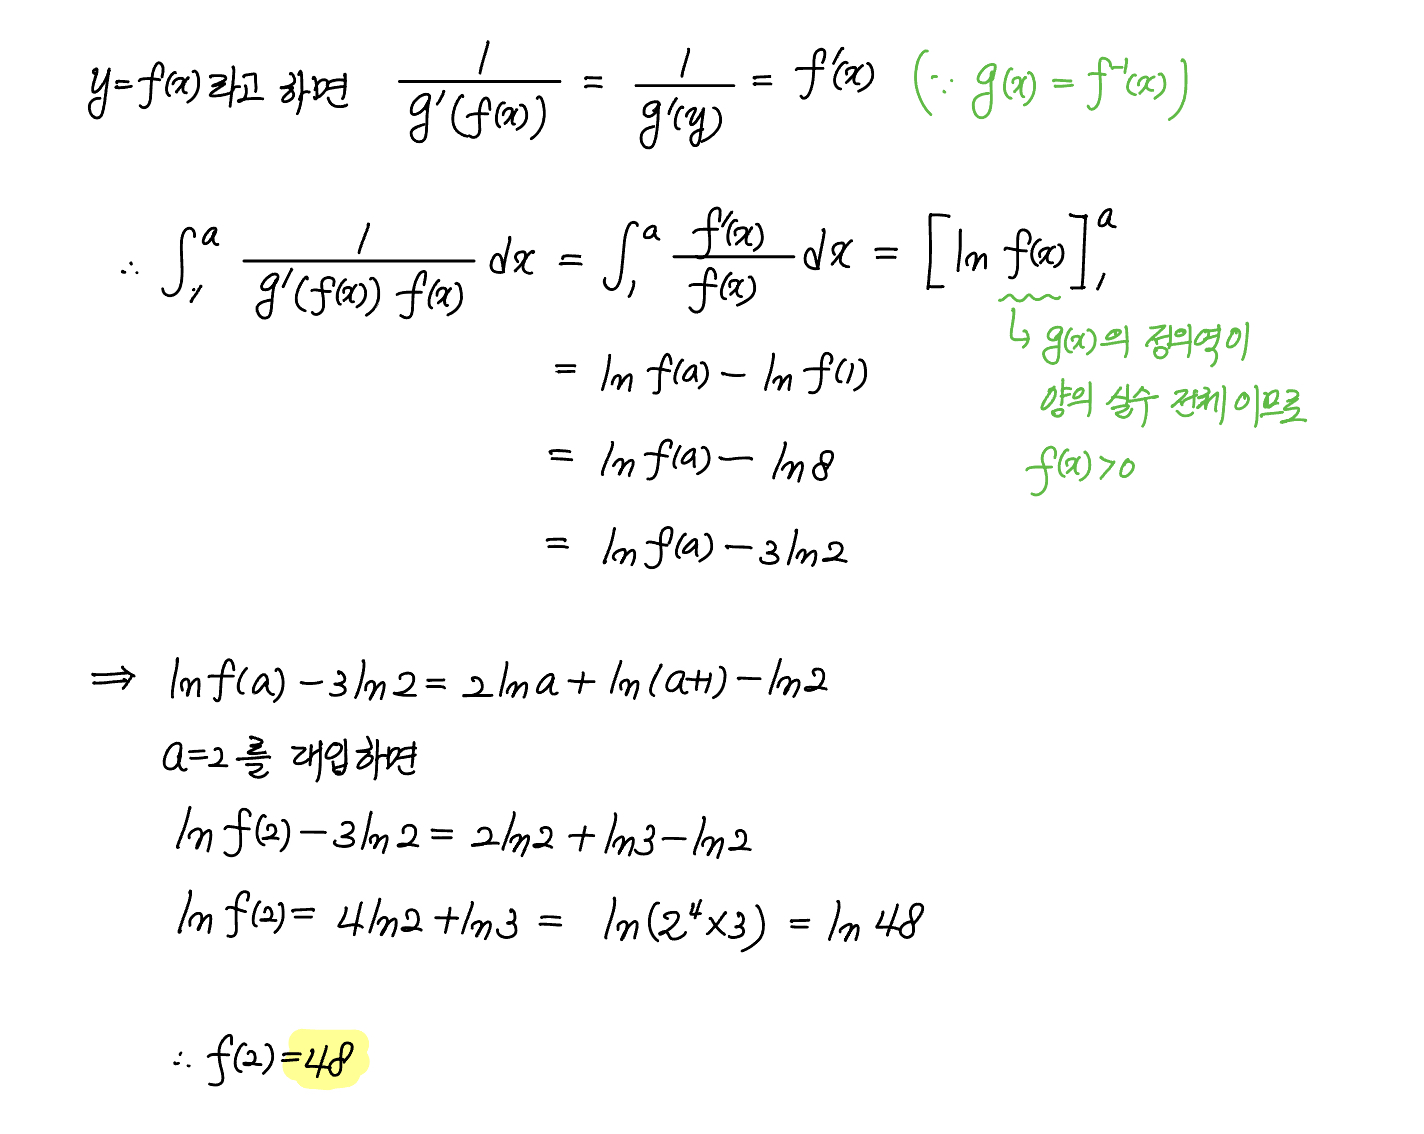 y=f(x)라고 하면 1/g'(f(x)) = 1/g'(y) = f'(x) (∵ g(x) = f⁻¹(x))
∴ ∫₁ᵃ 1/(g'(f(x)) f(x)) dx = ∫₁ᵃ f'(x)/f(x) dx = [ln f(x)]₁ᵃ
↳ g(x)의 정의역이
양의 실수 전체이므로
f(x)>0
= ln f(a) - ln f(1)
= ln f(a) - ln 8
= ln f(a) - 3 ln 2
⇒ ln f(a) - 3 ln 2 = 2 ln a + ln(a+1) - ln 2
a=2를 대입하면
ln f(2) - 3 ln 2 = 2 ln 2 + ln 3 - ln 2
ln f(2) = 4 ln 2 + ln 3 = ln(2⁴×3) = ln 48
∴ f(2) = 48